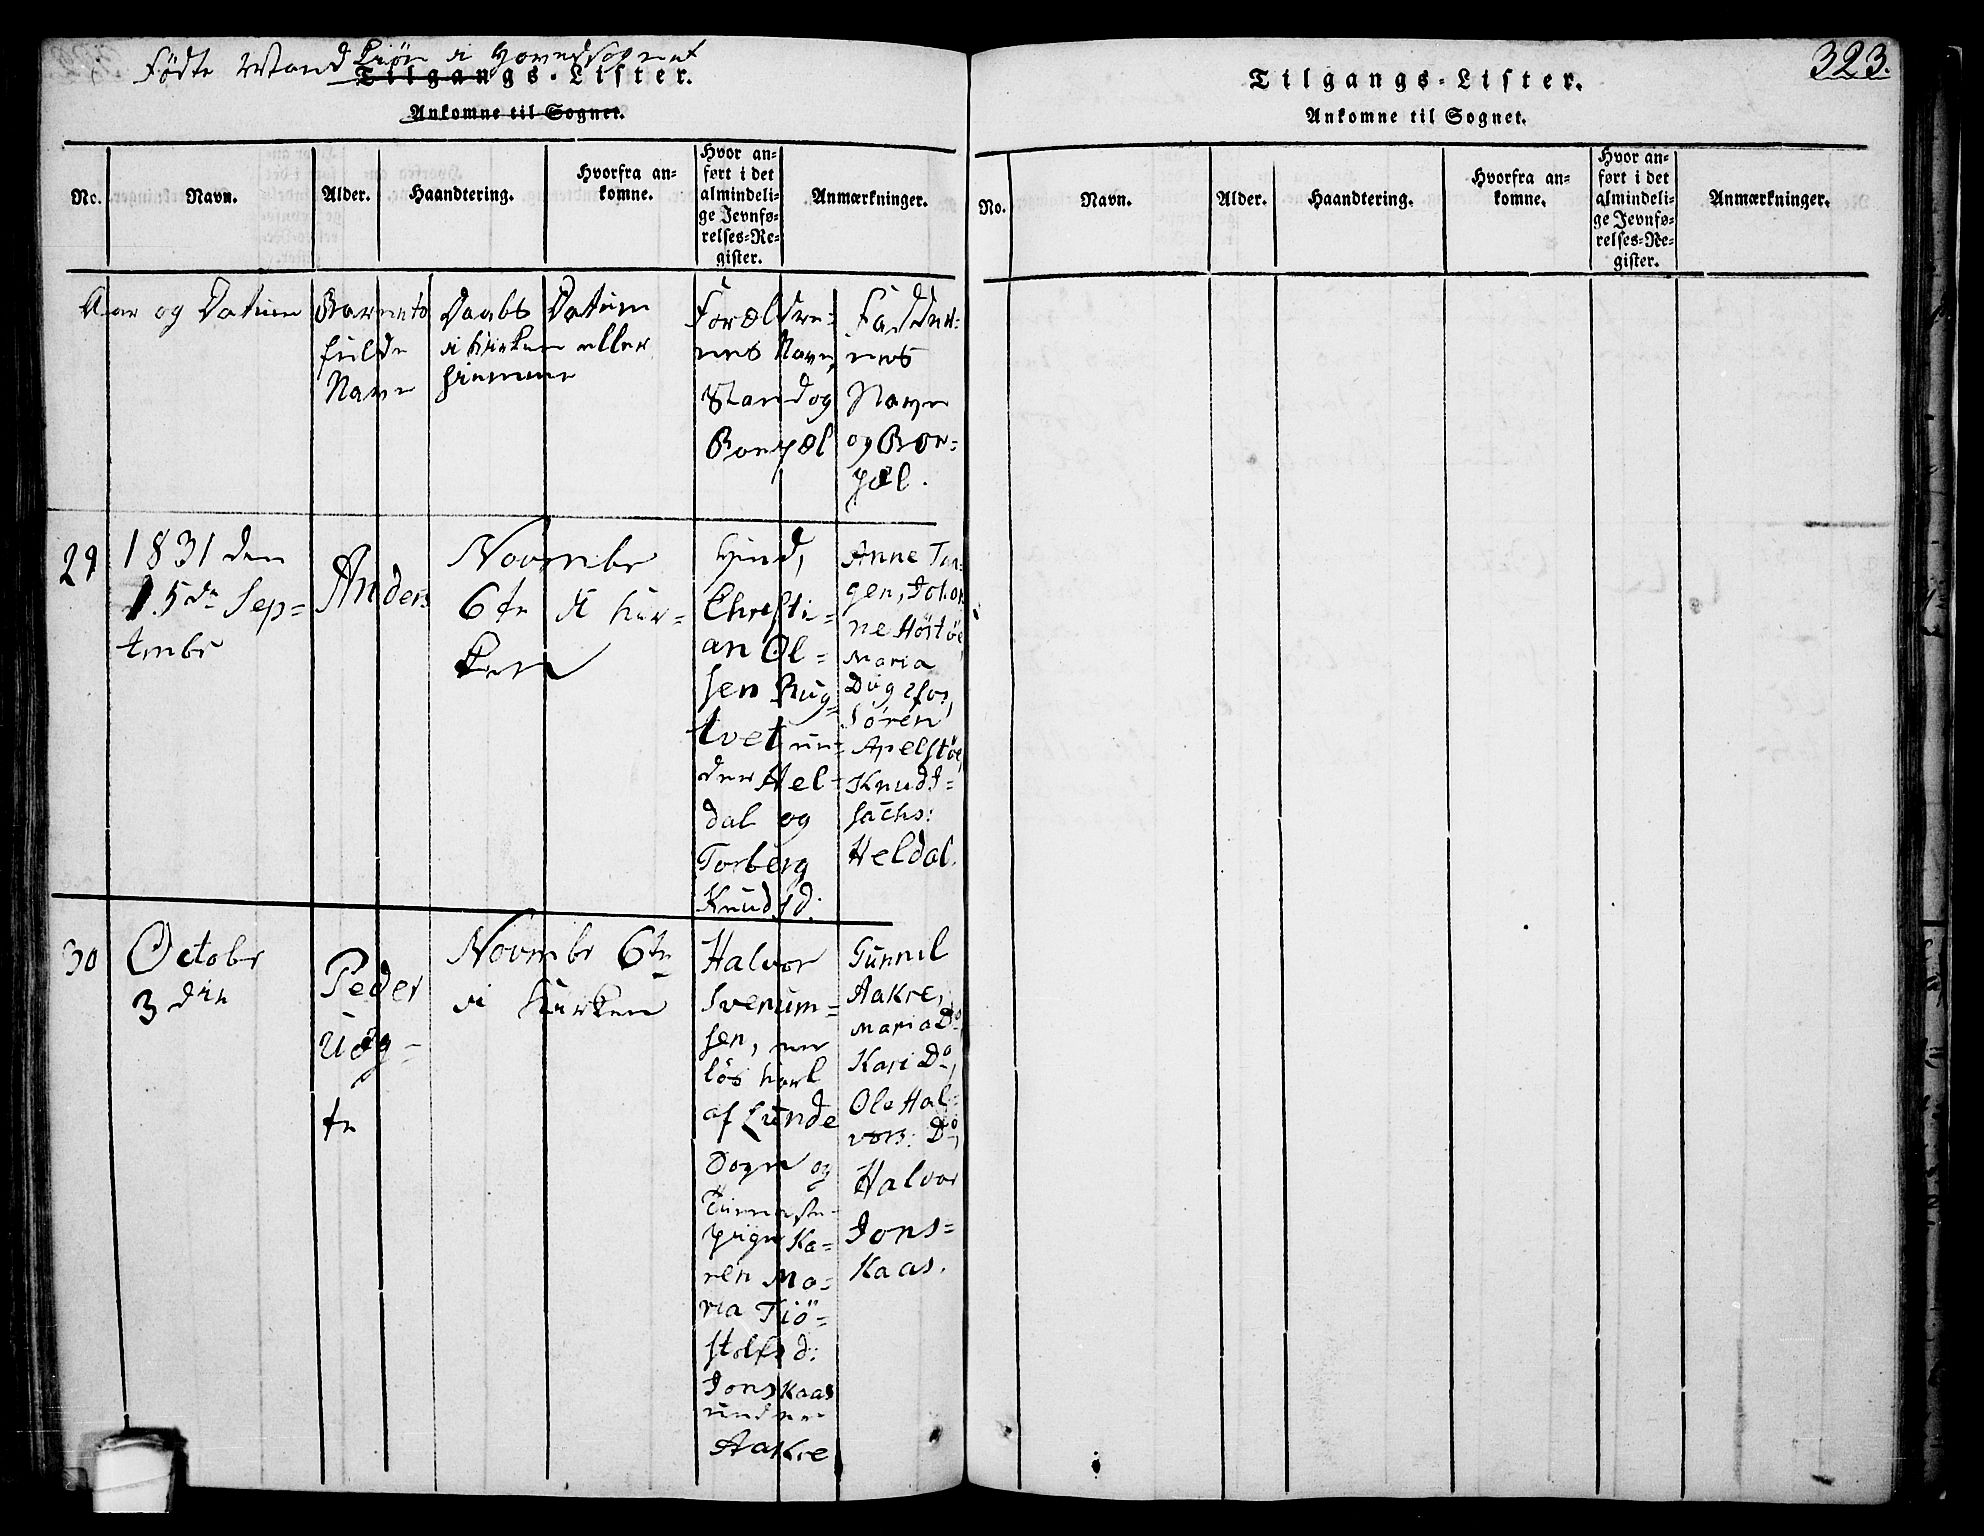 Fødte Mand Kiön i Hovedsognet
Tilgangs-Lister.
Ankomne til Sognet.
No.
Navn.
Alder.
Haandtering.
Hvorfra an-
komne.
Hvor an-
ført i det
almindeli-
ge Jevnfø-
relses-Re-
gister.
Anmærkninger.
Aar og Datum
Barnets
fulde
Navn
Daabs Datum
i Kirken eller
hiemme
Forældre-
nes Navn,
Stand og
Bopæl
Fadder-
nes
Navn
og Bo-
pæl.
29
1831 den
15de Sep-
tembr
Anders
Novembr
6te i Kir-
ken
Huusmd,
Christi-
an Ol-
sen Rug-
tvet un-
der Hel-
dal og
Torberg
Knudsd:
Anne Tan-
gen, Johan-
ne Höstöe,
Maria
Dugesfos,
Sören
Apelstöe,
Knud I-
sachs:
Heldal.
30
October
3die
Peder
uæg-
te
Novembr 6te
i Kirken
Halvor
Sverum-
sen,
lös karl
af Lunde
Sogn og
pige Ka-
ren Ma-
ria Tiö-
stolfsd:
Jonskaas
under
Aakre
Gunnil
Aakre,
Maria Do,
Kari Do,
Ole Hal-
vors: Do,
Halvor
Jons-
kaas.
323.
Tilgangs-Lister.
Ankomne til Sognet.
No.
Navn.
Alder.
Haandtering.
Hvorfra an-
komne.
Hvor an-
ført i det
almindeli-
ge Jevnfø-
relses-Re-
gister.
Anmærkninger.